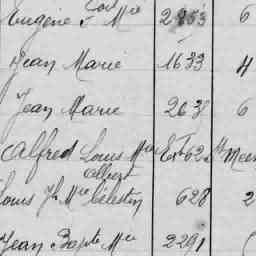 Eugène F. Mie 2853 6
Jean Marie 1633 4
Jean Marie 2638 6
Alfred Louis Mie Ext 622
Albert
Louis Jh Mie Célestin 628 2
Jean Bapte Mie 2291